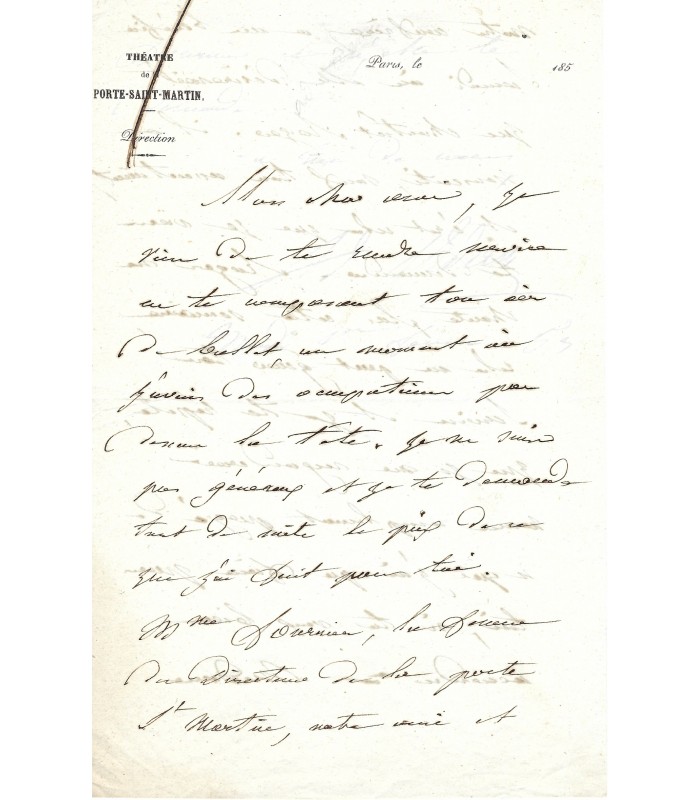 THÉATRE
de la
PORTE-SAINT-MARTIN.
Direction
Paris, le 185
Mon cher ami, je
viens de te rendre service
en te composant ton air
de ballet, au moment où
j'avais des occupations par
dessus la tête. je ne suis
pas généreux et je te demande
tout de suite le prix de ce
que j'ai fait pour toi.
Mme fournier, la femme
du Directeur de la porte
St Martin, notre ami et